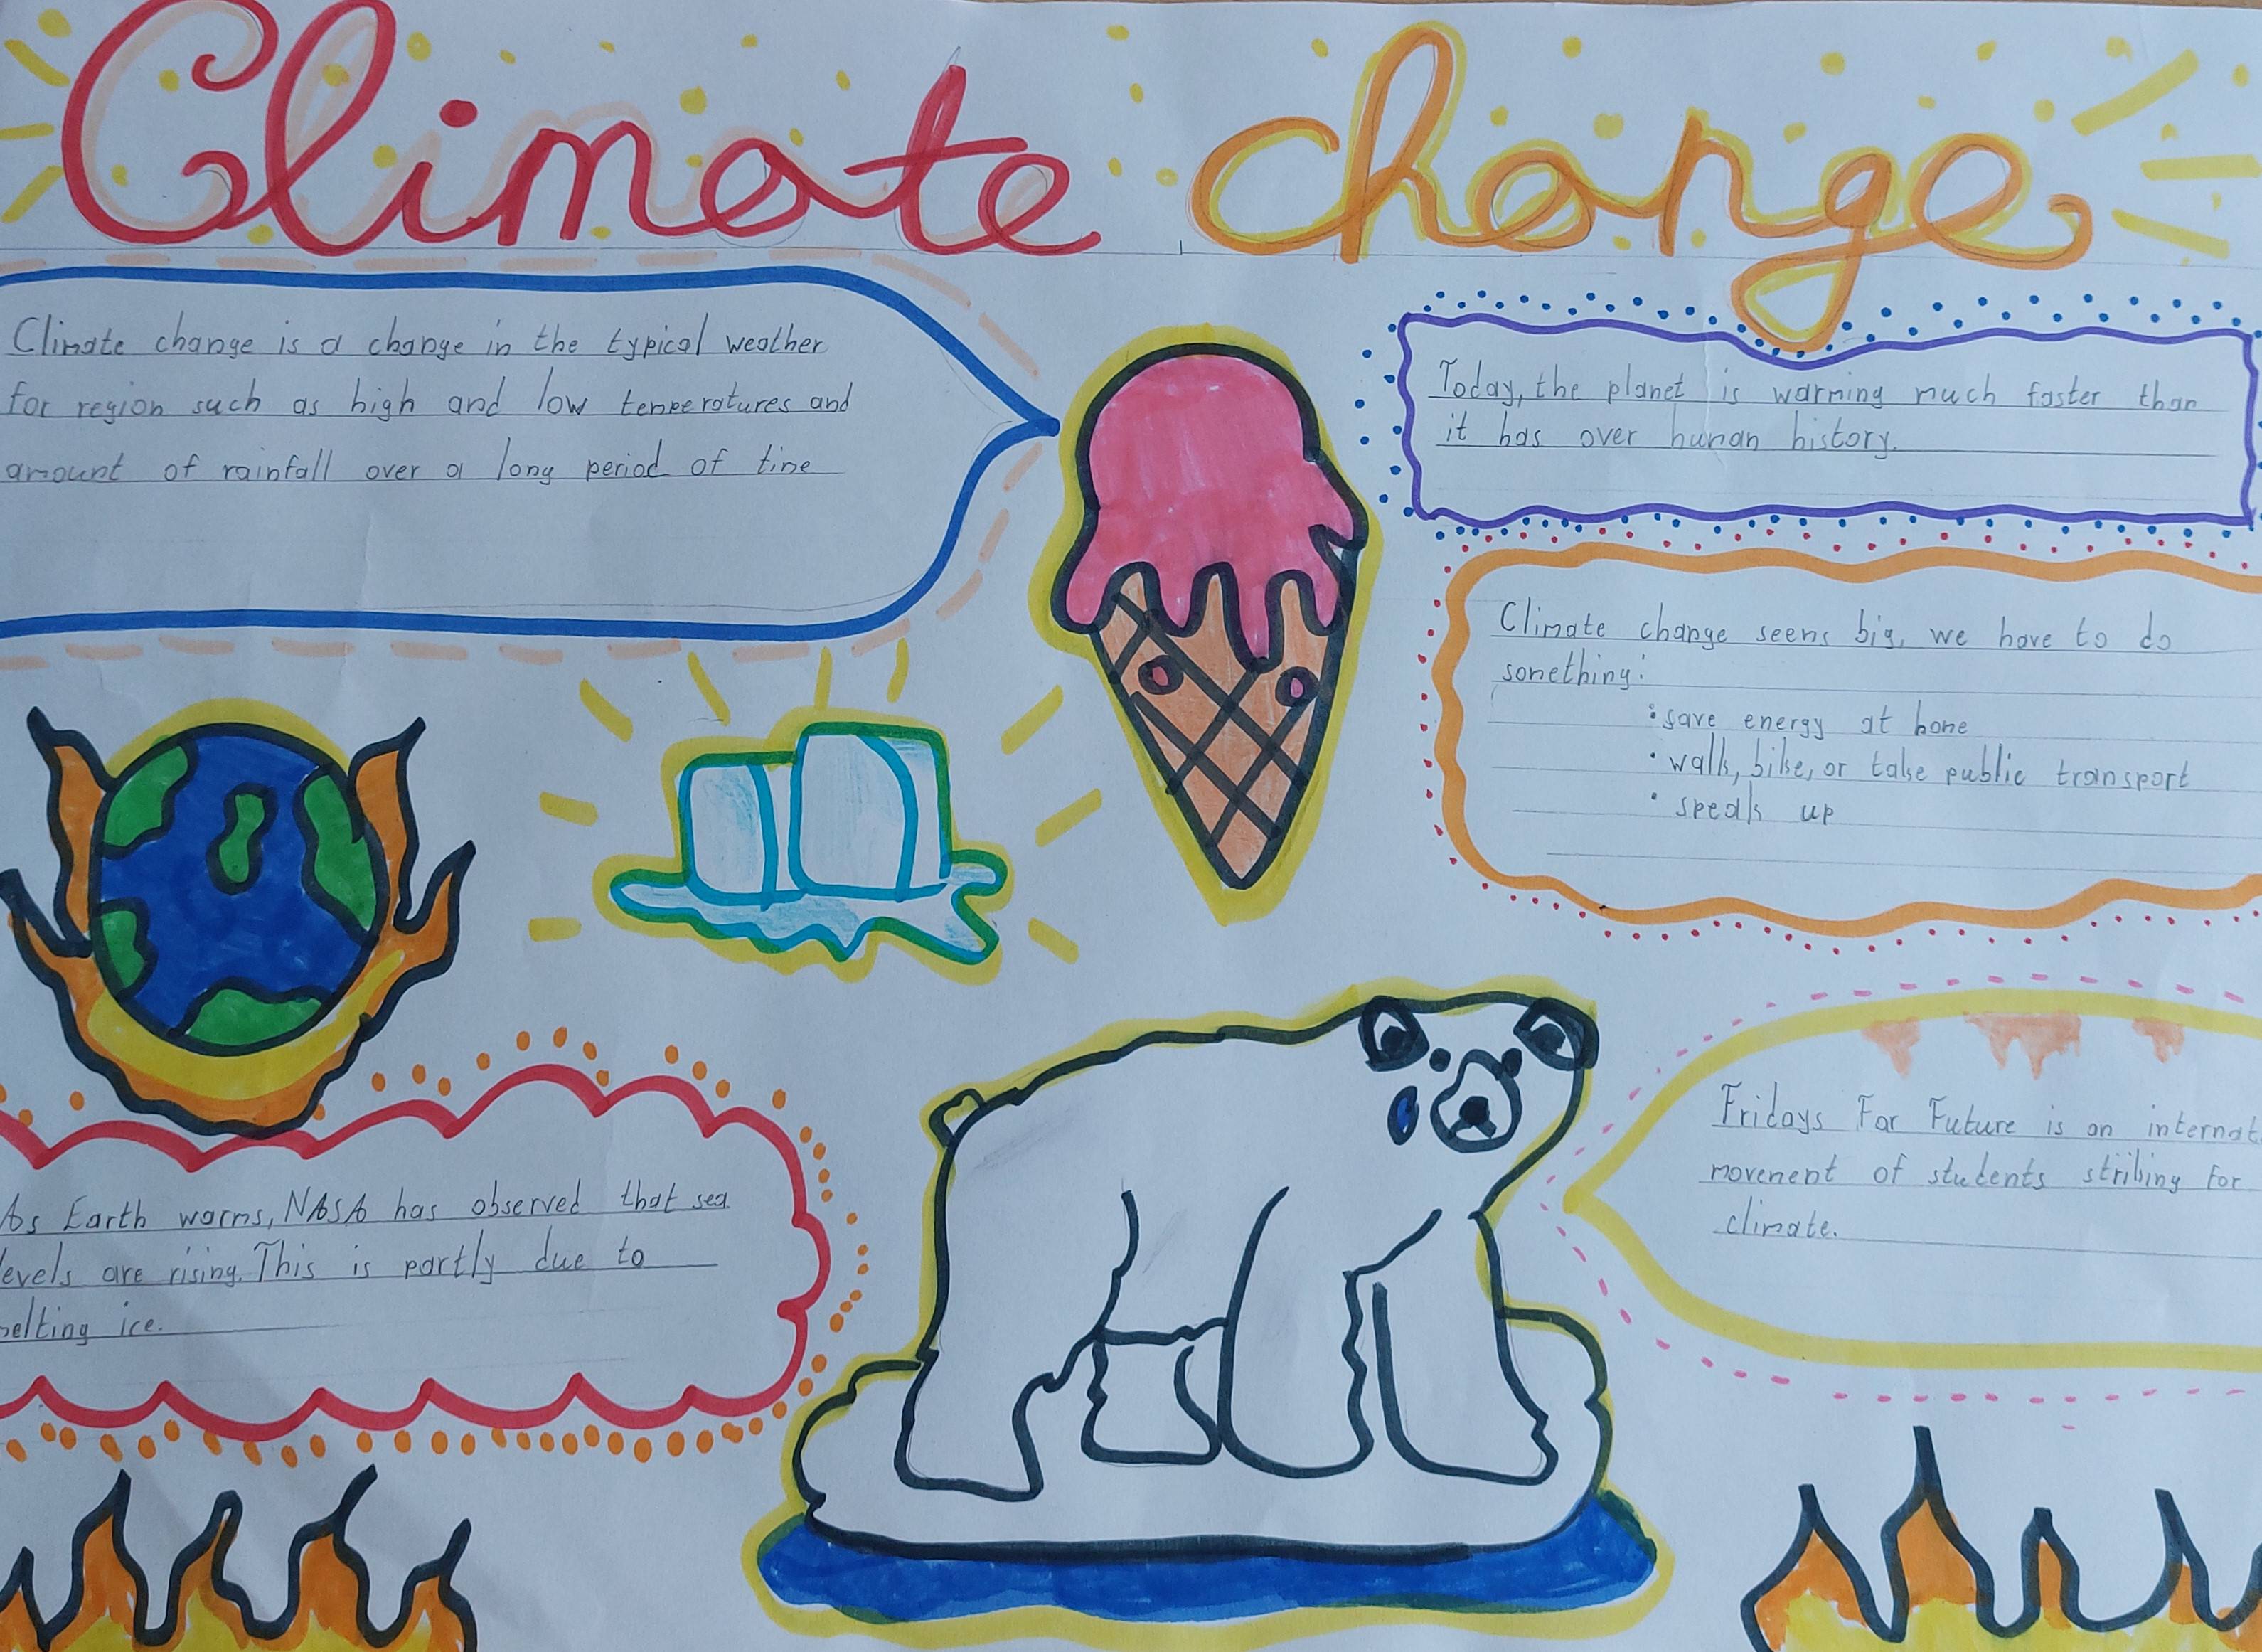 Climate change
Climate change is a change in the typical weather
for region such as high and low temperatures and
amount of rainfall over a long period of time
Today, the planet is warming much faster than
it has over human history.
Climate change seems big, we have to do
something:
• save energy at home
• walk, bike, or take public transport
• speak up
As Earth warms, NASA has observed that sea
levels are rising. This is partly due to
melting ice.
Fridays For Future is an internat
movement of students striking for
climate.